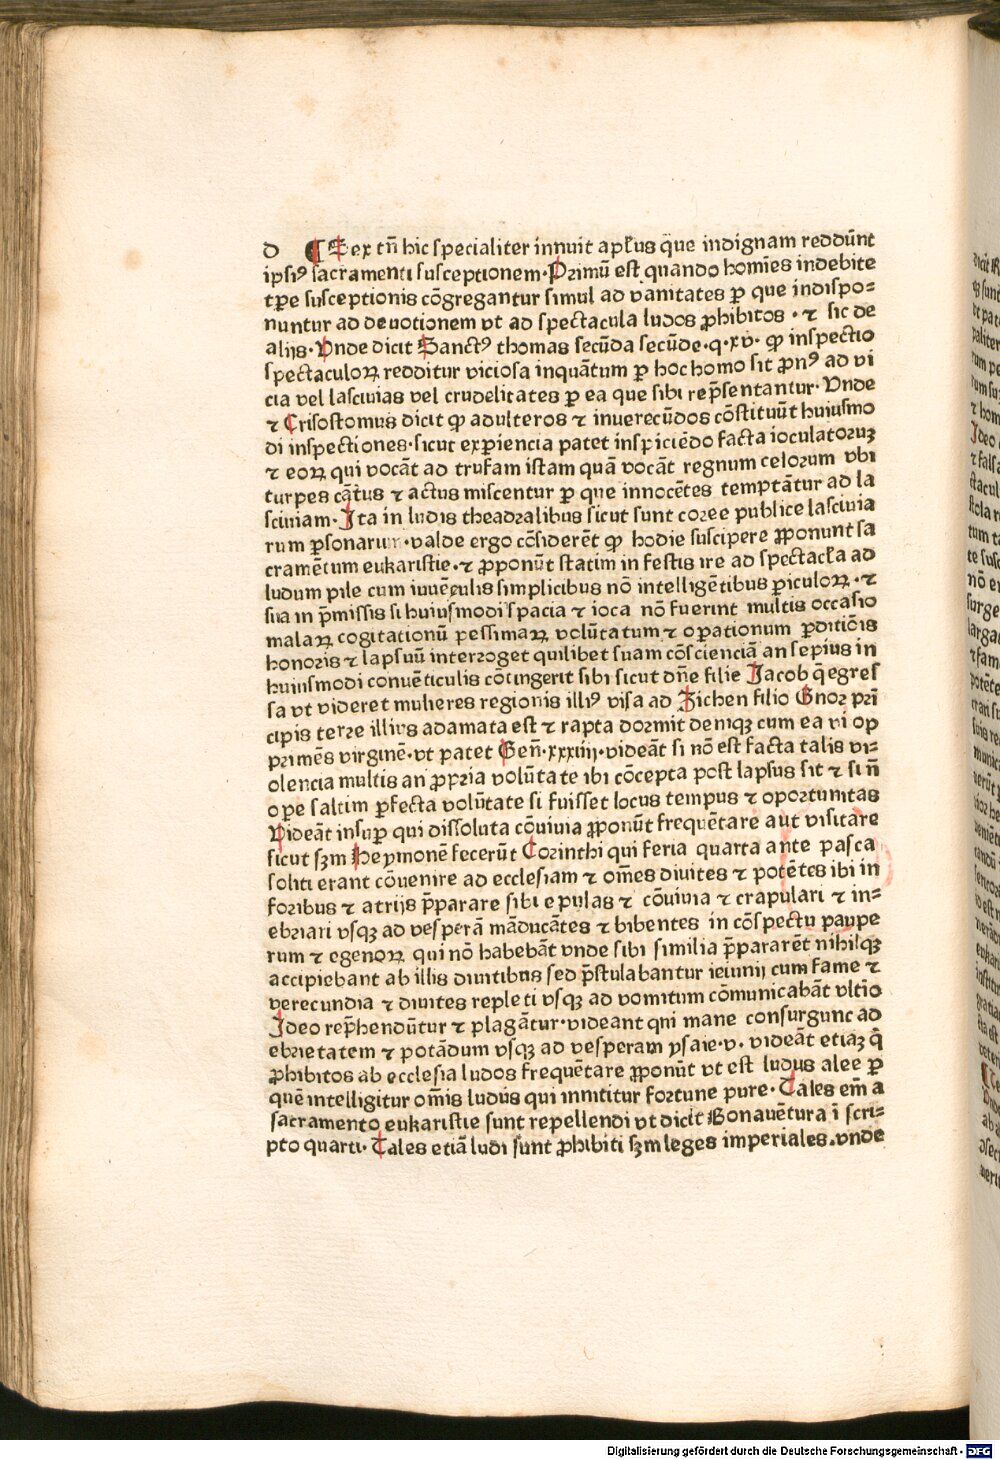 d ¶ Sex tn̄ hic specialiter innuit apƚus que indignam reddūnt
ipsiꝰ sacramenti susceptionem· Primū est quando homīes indebite
tp̄e susceptionis cōgregantur simul ad vanitates ꝑ que indispo⸗
nuntur ad deuotionem vt ad spectacula ludos ꝓhibitos · ⁊ sic de
alijs· Vnde dicit Sanctꝰ thomas secūda secūde·q·xv· ꝙ inspectio
spectaculoꝝ redditur viciosa inquātum ꝑ hoc homo sit ꝓnꝰ ad vi
cia vel lasciuias vel crudelitates ꝑ ea que sibi rep̄sentantur· Vnde
⁊ Crisostomus dicit ꝙ adulteros ⁊ inuerecūdos cōstituūt huiusmo
di inspectiones·sicut exꝑiencia patet inspiciēdo facta ioculatoruꝫ
⁊ eoꝝ qui vocāt ad trufam istam quā vocāt regnum celorum vbi
turpes cātus ⁊ actus miscentur ꝑ que innocētes temptātur ad la
sciuiam· Ita in ludis theadralibus sicut sunt coree publice lasciuia
rum ꝑsonarum·valde ergo cōsiderēt ꝙ hodie suscipere ꝓponunt sa
cramētum eukaristie·⁊ ꝓponūt statim in festis ire ad spectacƚa ad
ludum pile cum iuuēculis simplicibus nō intelligētibus ꝑiculoꝝ·⁊
sua in p̄missis si huiusmodi spacia ⁊ ioca nō fuerint multis occasio
malaꝝ cogitationū pessimaꝝ volūtatum ⁊ oꝑationum ꝑditiōis
honoris ⁊ lapsuū interroget quilibet suam cōscienciā an sepius in
huiusmodi conuēticulis cōtingerit sibi sicut dn̄e filie Jacob q̄ egres
sa vt videret mulieres regionis illiꝰ visa ad Sichen filio Emor pri
cipis terre illius adamata est ⁊ rapta dormit deniqꝫ cum ea vi op
primēs virginē·vt patet Gen̄·xxxiiij·videāt si nō est facta talis vi⸗
olencia multis an ꝓpria volūtate ibi cōcepta post lapsus sit ⁊ si n̄
ope saltim ꝑfecta volūtate si fuisset locus tempus ⁊ oportunitas
Videāt insuꝑ qui dissoluta cōuiuia ꝓponūt frequētare aut visitare
sicut sꝫm Heymonē fecerūt Corinthi qui feria quarta ante pasca
soliti erant cōuenire ad ecclesiam ⁊ om̄es diuites ⁊ potētes ibi in
foribus ⁊ atrijs p̄parare sibi epulas ⁊ cōuiuia ⁊ crapulari ⁊ in⸗
ebriari vsqꝫ ad vesperā māducātes ⁊ bibentes in cōspectu paupe
rum ⁊ egenoꝝ qui nō habebāt vnde sibi similia p̄pararēt nihilqꝫ
accipiebant ab illis diuitibus sed p̄stulabantur ieiunij cum fame ⁊
verecundia ⁊ diuites repleti vsqꝫ ad vomitum cōmunicabāt vltīo
Ideo rep̄hendūtur ⁊ plagātur·videant qui mane consurgunc ad
ebrietatem ⁊ potādum vsqꝫ ad vesperam ysaie·v· videāt etiaꝫ q̄
ꝓhibitos ab ecclesia ludos frequētare ꝓponūt vt est ludus alee ꝑ
quē intelligitur om̄is ludus qui innititur fortune pure· Tales em̄ a
sacramento eukaristie sunt repellendi vt dicit Bonauētura ī scri⸗
pto quarti· Tales etiā ludi sunt ꝓhibiti sꝫm leges imperiales·vnde
Digitalisierung gefördert durch die Deutsche Forschungsgemeinschaft - DFG